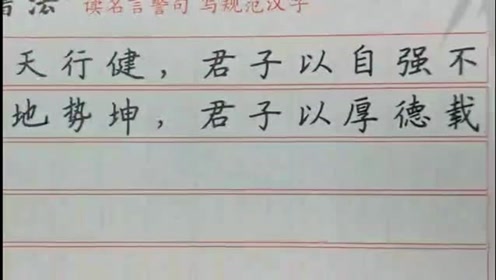 法 读名言警句 写规范汉字
天行健，君子以自强不
地势坤，君子以厚德载